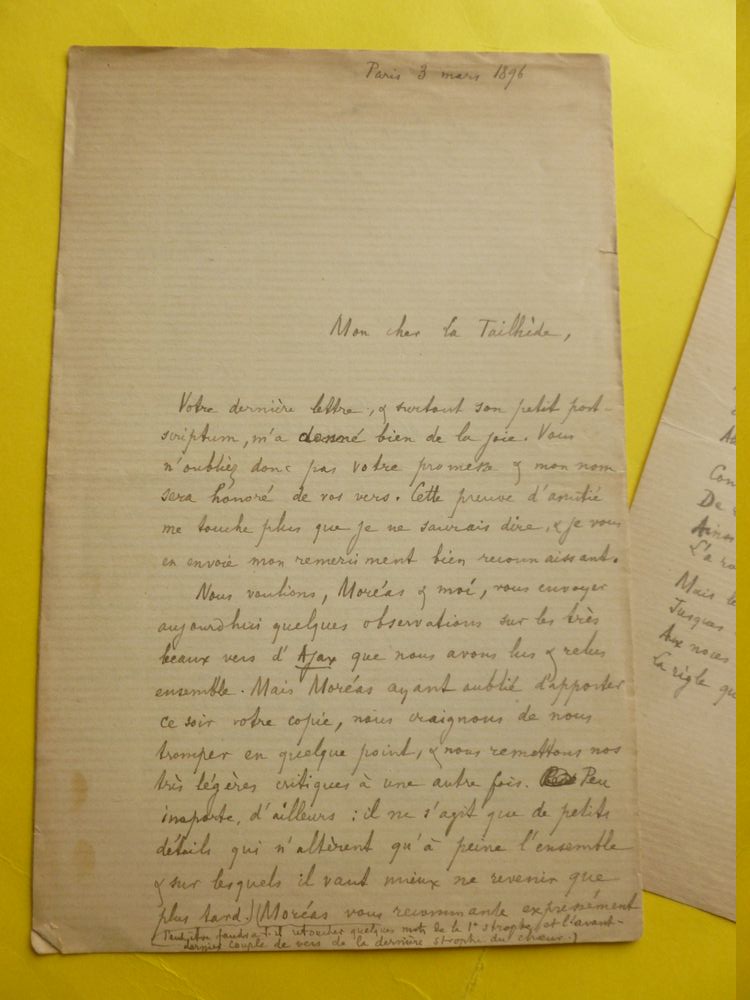 Paris 3 mars 1896
Mon cher la Tailhède,
Votre dernière lettre, & surtout son petit post-
scriptum, m'a donné bien de la joie. Vous
n'oubliez donc pas votre promesse & mon nom
sera honoré de vos vers. Cette preuve d'amitié
me touche plus que je ne saurais dire, & je vous
en envoie mon remerciment bien reconnaissant.
Nous voulions, Moréas & moi, vous envoyer
aujourdhui quelques observations sur les très
beaux vers d'Ajax que nous avons lus & relus
ensemble. Mais Moréas ayant oublié d'apporter
ce soir votre copie, nous craignons de nous
tromper en quelque point, & nous remettons nos
très légères critiques à une autre fois. Peu
importe, d'ailleurs : il ne s'agit que de petits
détails qui n'altèrent qu'à peine l'ensemble
& sur lesquels il vaut mieux ne revenir que
plus tard.) (Moréas vous recommande expressément
(Peut-être faudrait-il retoucher quelques mots de la 1e strophe et l'avant-
dernier couple de vers de la dernière strophe du chœur.)
Con
De
Ainsi
L'a
Mais le
Jusques
Aux noces
La règle qu